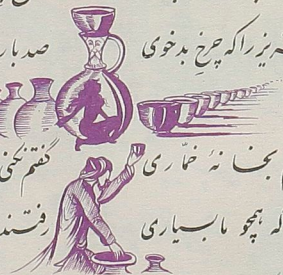 یز را که چرخ بدخوی صد بار
بخانهٔ خمّاری گفتم نکنی
که همچو ما بسیاری رفتند